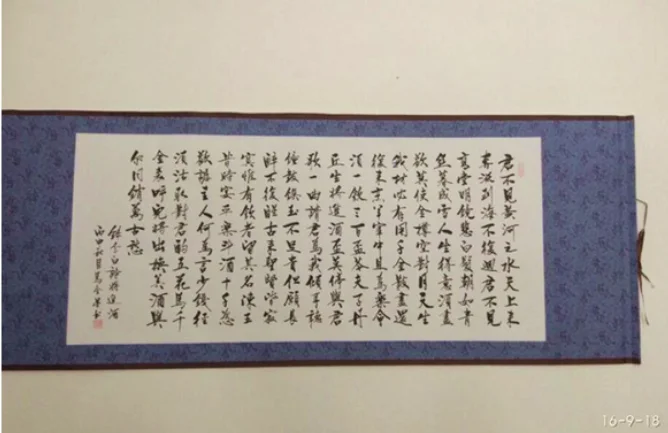 君不見黄河之水天上来
奔流到海不復迴君不見
高堂明鏡悲白髮朝如青
絲暮成雪人生得意須盡
歡莫使金樽空對月天生
我材必有用千金散盡還
復来烹羊宰牛且爲樂會
須一飲三百盃岑夫子丹
丘生將進酒盃莫停與君
歌一曲請君爲我傾耳聽
鐘鼓饌玉不足貴但願長
醉不復醒古来聖賢皆寂
寞惟有飲者留其名陳王
昔時宴平樂斗酒十千恣
歡謔主人何爲言少錢徑
須沽取對君酌五花馬千
金裘呼兒將出換美酒與
尔同銷萬古愁
録李白詩將進酒
丙申秋月
16-9-18